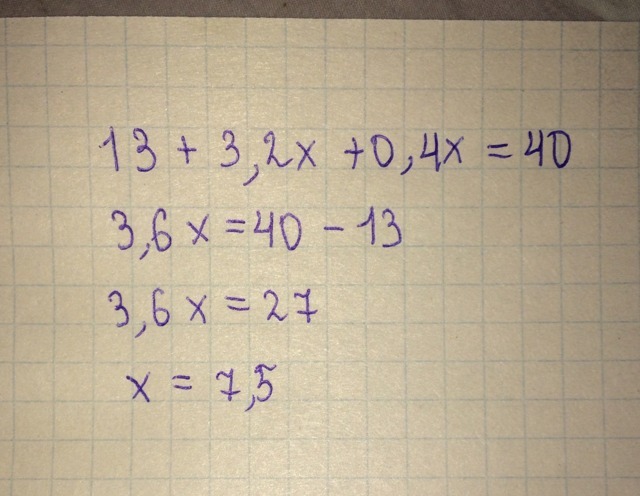 13 + 3,2x + 0,4x = 40
3,6x = 40 - 13
3,6x = 27
x = 7,5